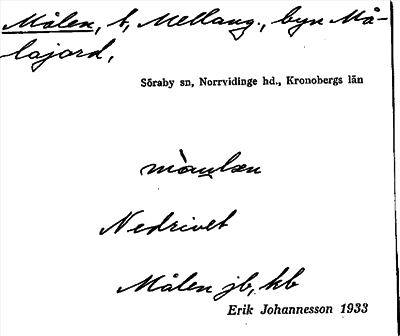 Målen, t, Mellang., byn Må-
lajord,
Söraby sn, Norrvidinge hd., Kronobergs län
mòu̯læn
Nedrivet
Målen jb, kb
Erik Johannesson 1933